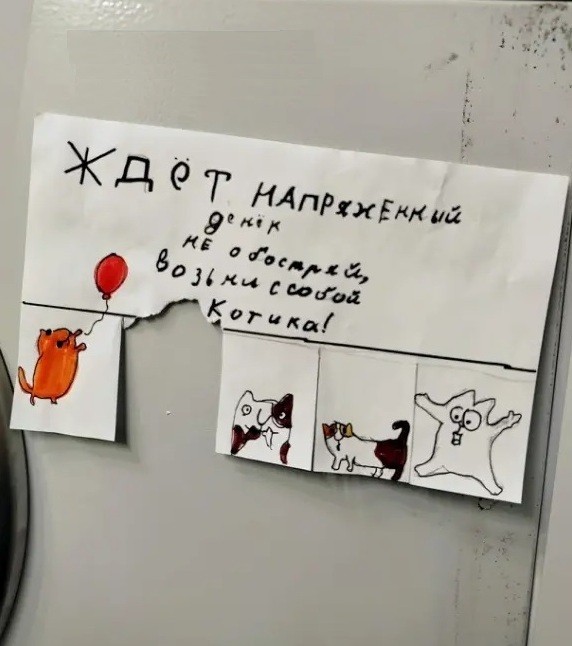 ЖДЁТ НАПРЯЖЕННЫЙ
денёк
НЕ обостряй,
возьми ссобой
Котика!